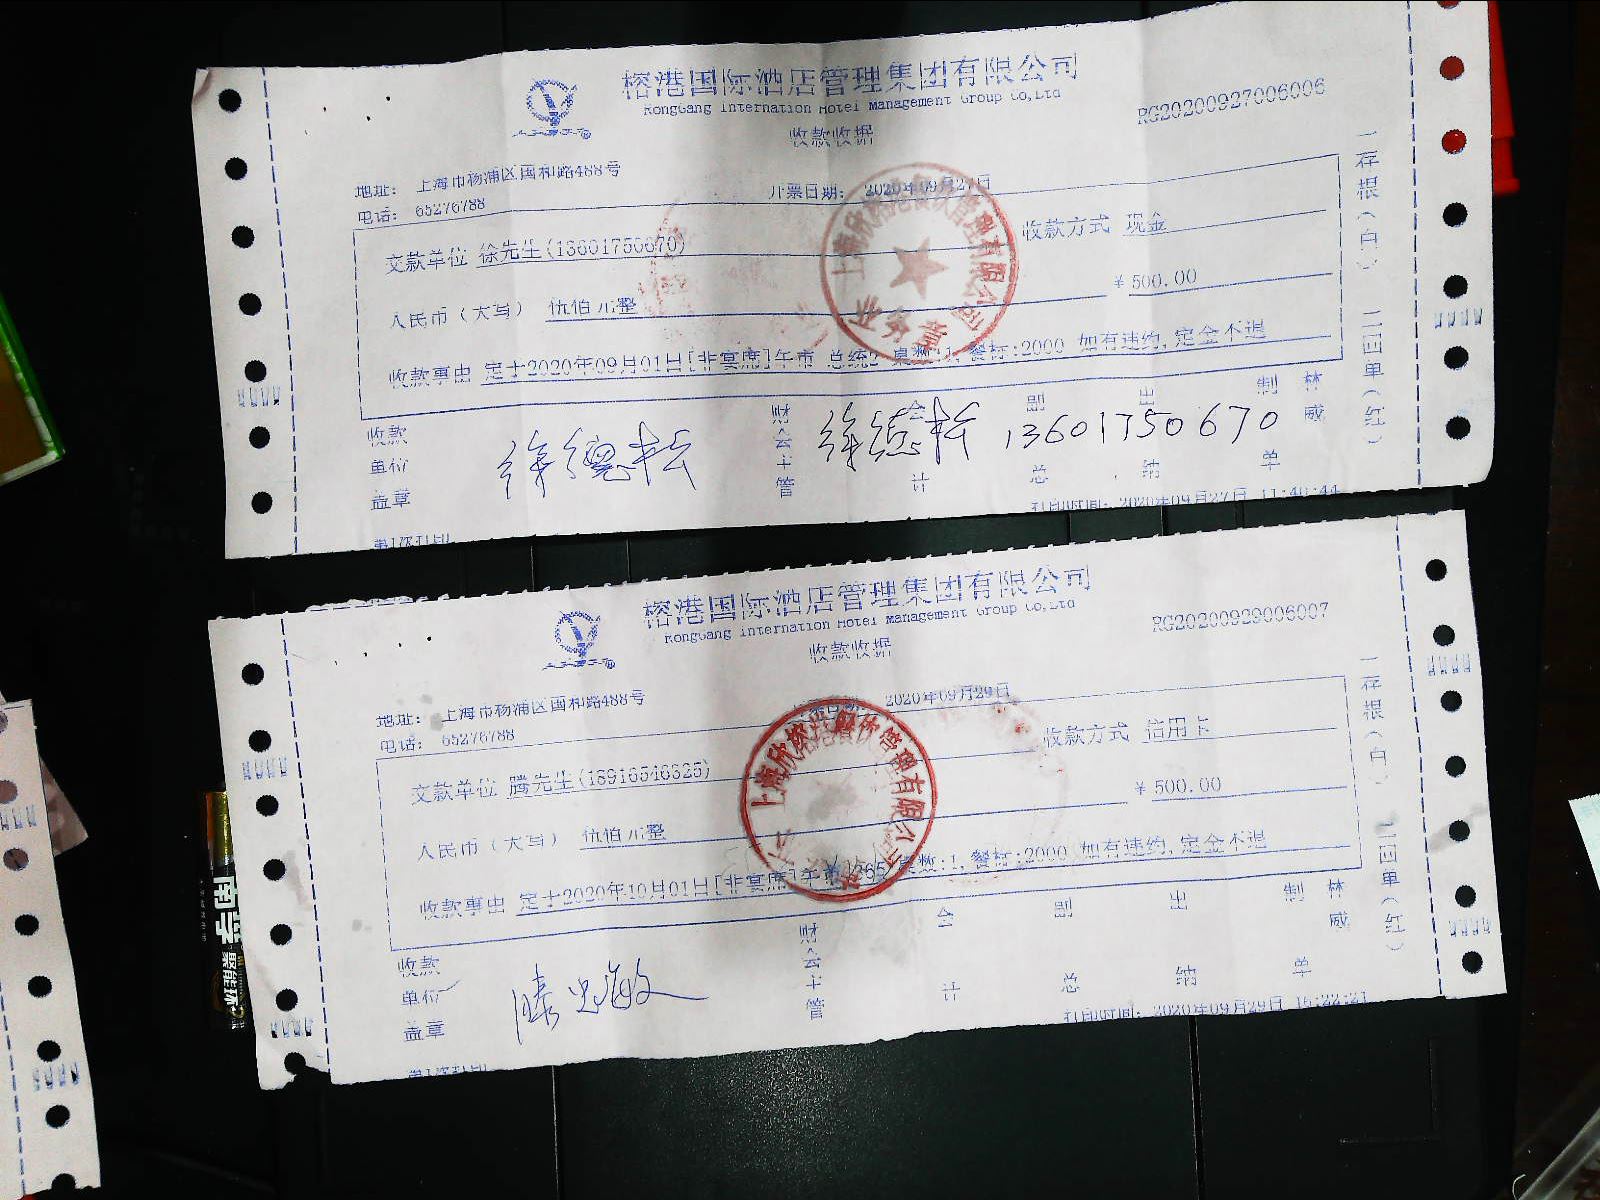 榕港国际酒店管理集团有限公司
RongGang Internation Hotel Management Group Co,Ltd
收款收据
RG20200927006006
地址： 上海市杨浦区国和路488号
电话： 65276788
开票日期： 2020年09月27日
交款单位 徐先生(13601750670)
收款方式 现金
人民币（大写） 伍佰元整
￥500.00
收款事由 定于2020年09月01日[非宴席]午市 总统2 桌数:1, 餐标:2000 如有违约, 定金不退
上海欣榕港餐饮管理有限公司
业务章
一存根(白) 二回单(红)
收款单位盖章
财会主管
会计
副总
出纳
制单
林威
13601750670
打印时间: 2020年09月27日 11:40:44
第1次打印
榕港国际酒店管理集团有限公司
RongGang Internation Hotel Management Group Co,Ltd
收款收据
RG20200929006007
地址： 上海市杨浦区国和路488号
电话： 65276788
2020年09月29日
交款单位 腾先生(18916546325)
收款方式 信用卡
人民币（大写） 伍佰元整
￥500.00
收款事由 定于2020年10月01日[非宴席]午市 桌数:1, 餐标:2000 如有违约, 定金不退
上海欣榕港餐饮管理有限公司
一存根(白) 二回单(红)
收款单位盖章
财会主管
会计
副总
出纳
制单
林威
打印时间: 2020年09月29日 16:22:21
第1次打印
南孚
聚能环